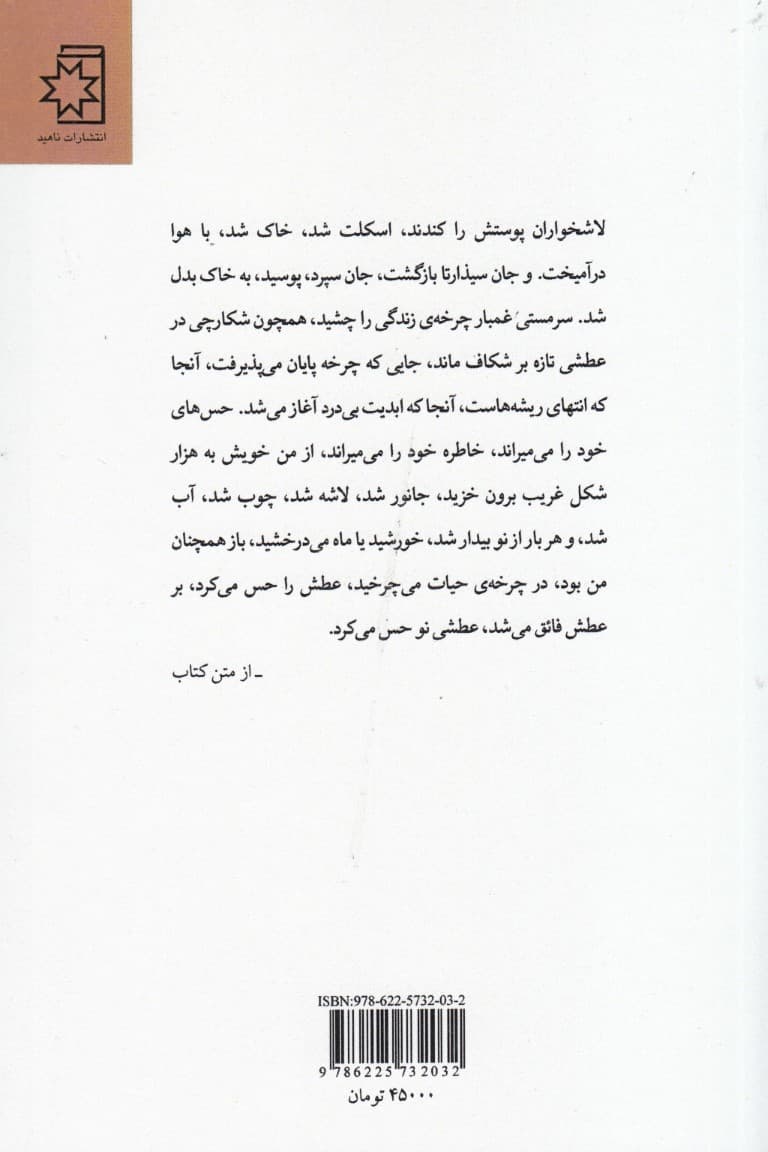 انتشارات ناهید
لاشخواران پوستش را کندند، اسکلت شد، خاک شد، با هوا
درآمیخت. و جان سیذارتا بازگشت، جان سپرد، پوسید، به خاک بدل
شد. سرمستیِ غمبار چرخه‌ی زندگی را چشید، همچون شکارچی در
عطشی تازه بر شکاف ماند، جایی که چرخه پایان می‌پذیرفت، آنجا
که انتهای ریشه‌هاست، آنجا که ابدیت بی‌درد آغاز می‌شد. حس‌های
خود را می‌میراند، خاطره خود را می‌میراند، از من خویش به هزار
شکل غریب برون خزید، جانور شد، لاشه شد، چوب شد، آب
شد، و هر بار از نو بیدار شد، خورشید یا ماه می‌درخشید، باز همچنان
من بود، در چرخه‌ی حیات می‌چرخید، عطش را حس می‌کرد، بر
عطش فائق می‌شد، عطشی نو حس می‌کرد.
ـ از متن کتاب
ISBN:978-622-5732-03-2
9 786225 732032
۴۵۰۰۰ تومان